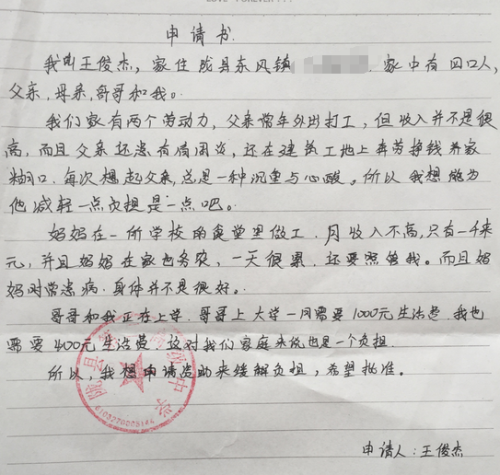 申请书
我叫王俊杰，家住陇县东风镇 家中有四口人，
父亲，母亲，哥哥和我。
我们家有两个劳动力，父亲常年外出打工，但收入并不是很
高，而且父亲还患有肩周炎，还在建筑工地上辛劳挣钱养家
糊口，每次想起父亲，总是一种沉重与心酸。所以我想能为
他减轻一点负担是一点吧。
妈妈在一所学校的食堂里做工，月收入不高，只有一千来
元，并且妈妈在家也务农，一天很累，还要照管我。而且妈
妈时常患病，身体并不是很好。
哥哥和我正在上学，哥哥上大学一月需要1000元生活费，我也
需要400元生活费，这对我们家庭来说也是一个负担。
所以，我想申请资助来缓解负担，希望批准。
陇县 中学
申请人：王俊杰